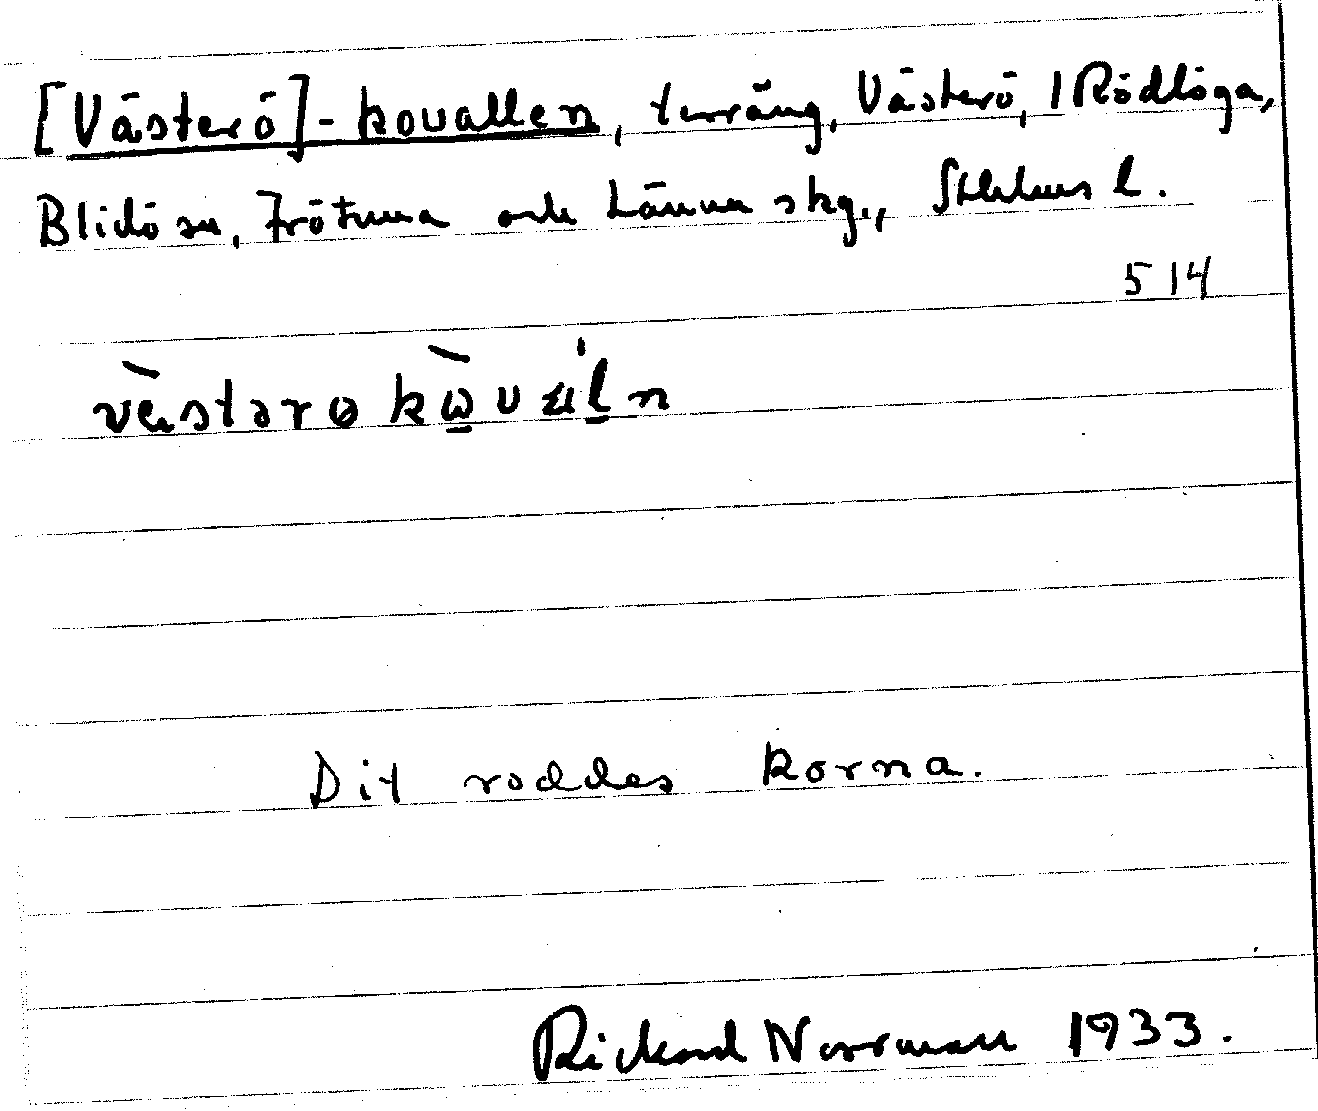 [Västerö]-kovallen, terräng, Västerö, 1 Rödlöga,
Blidö sn, Frötuna och Länna skg., Sthlms l.
514
Dit roddes korna.
Rickard Norrman 1933.